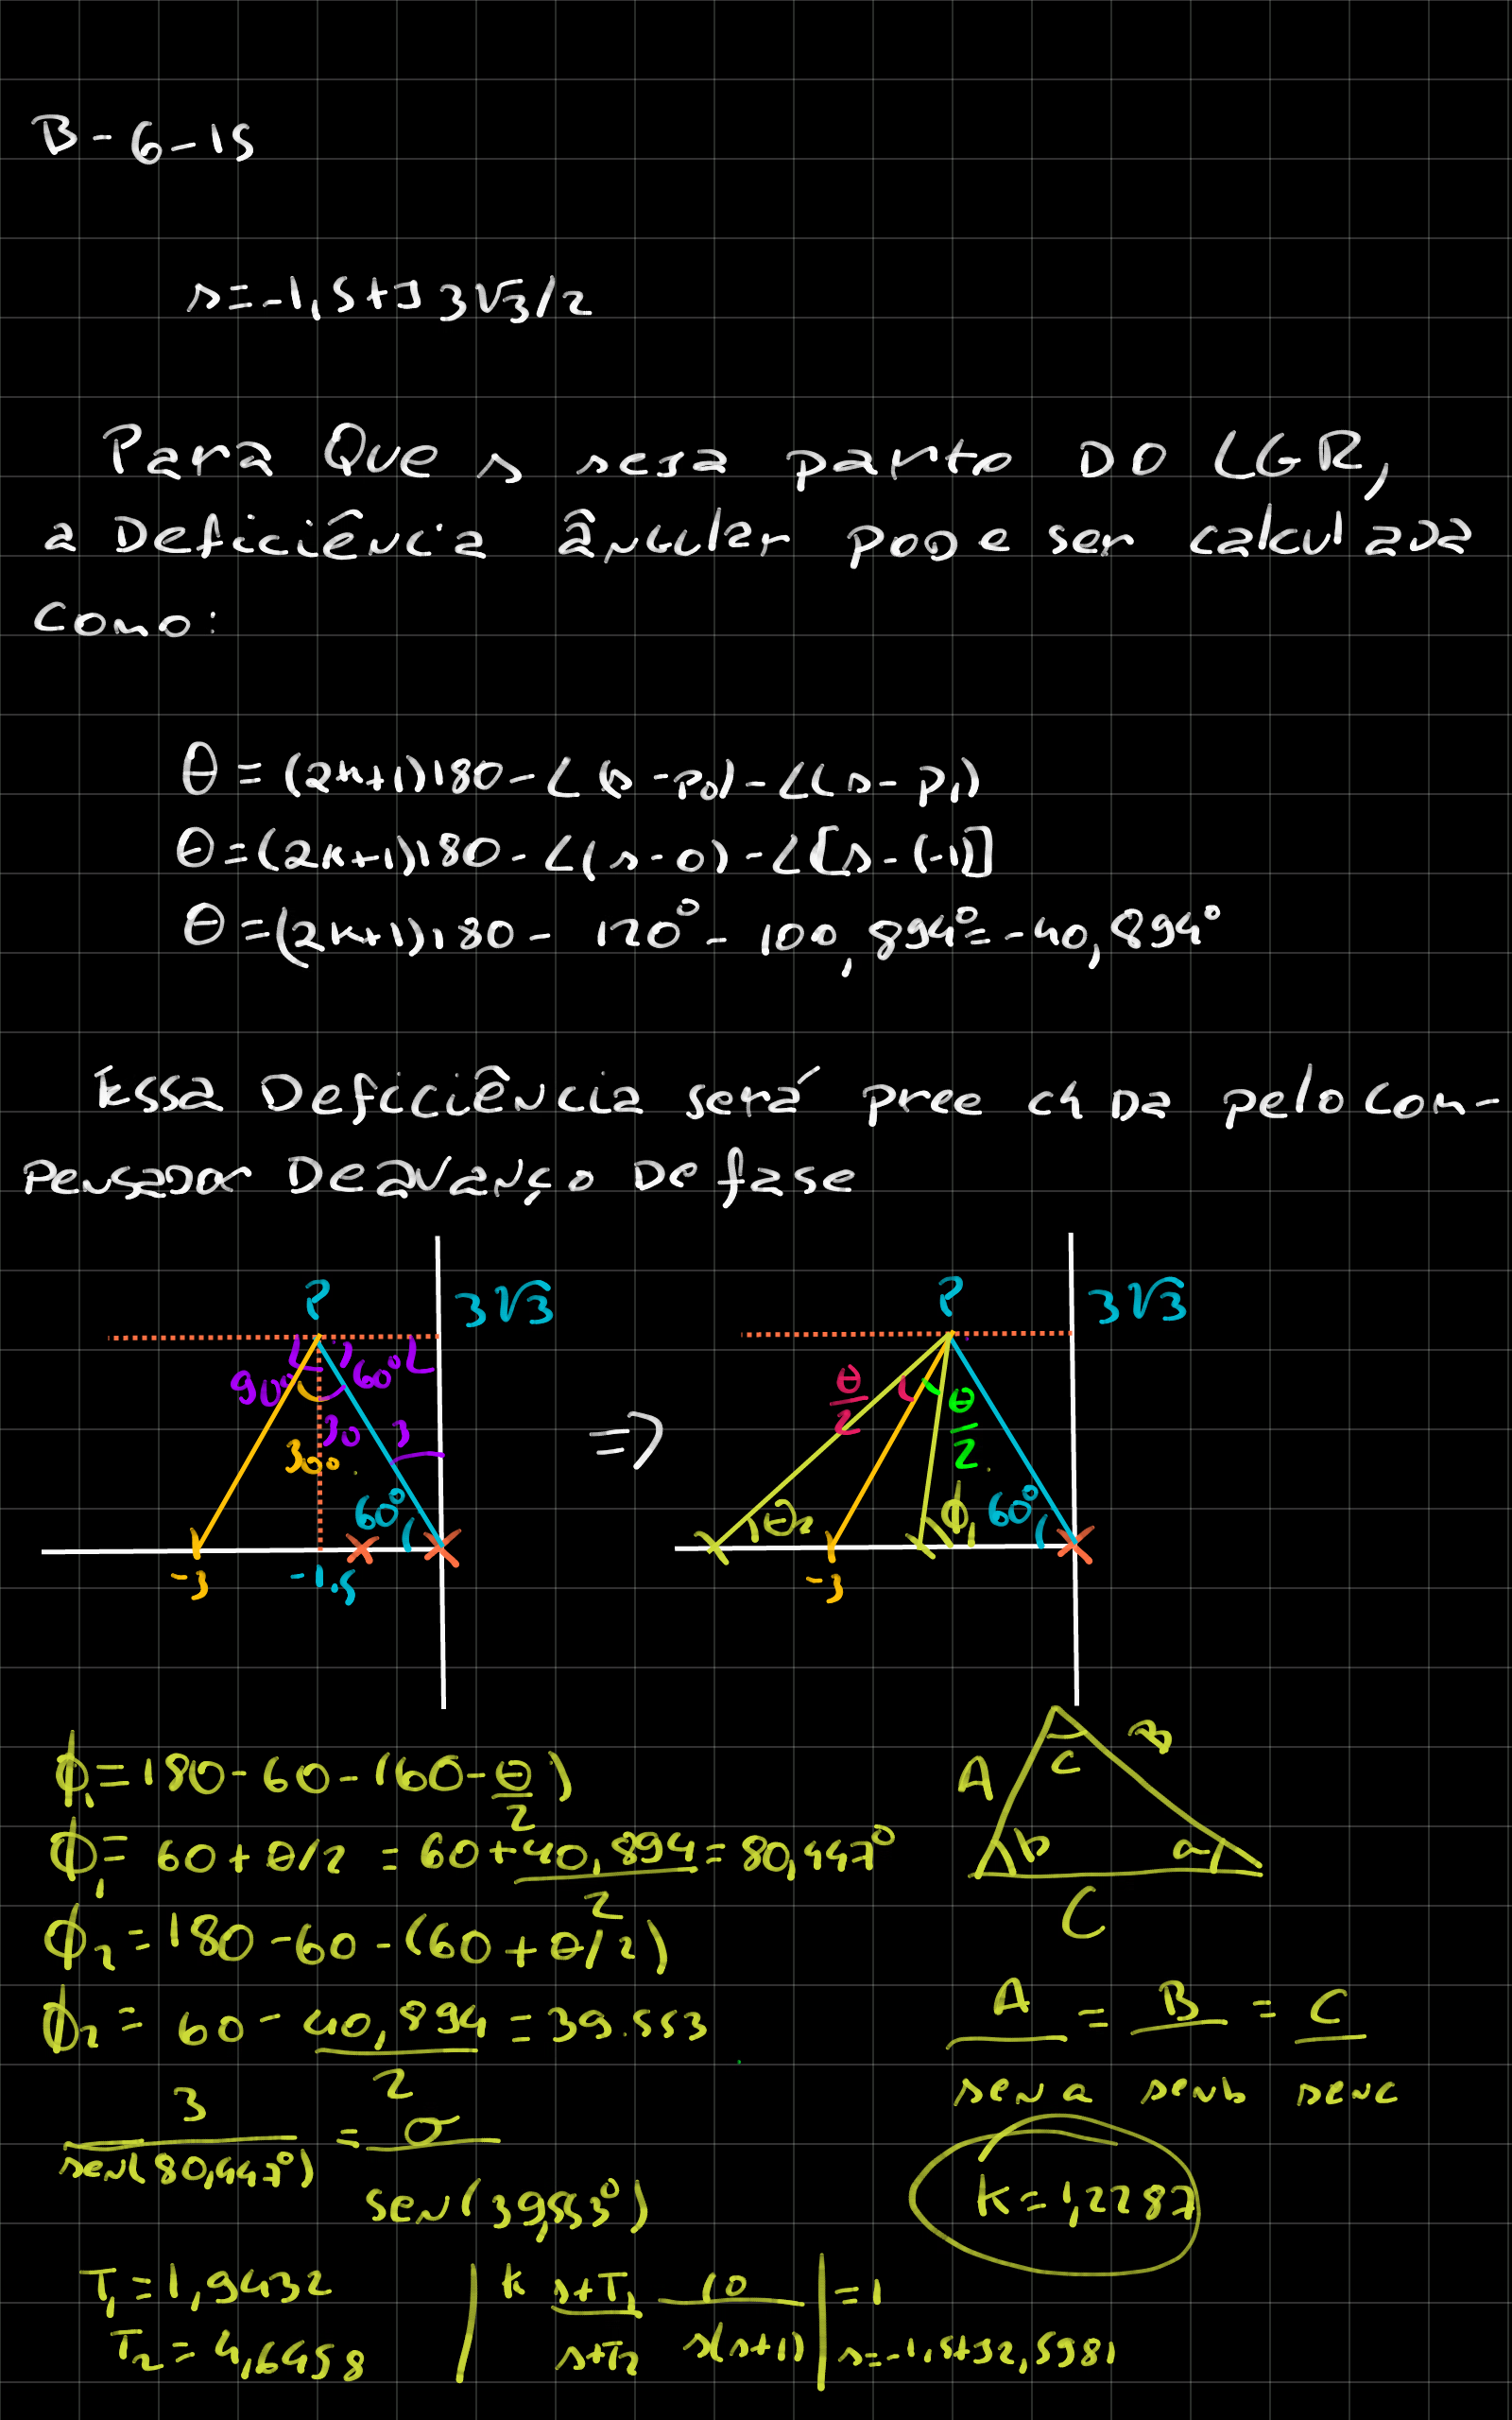 B-6-15
s=-1,5+J3√3/2
Para Que s seja parte DO LGR,
a Deficiência ângular pode ser calculada
como:
θ=(2k+1)180-∠(s-p₀)-∠(s-p₁)
θ=(2k+1)180-∠(s-0)-∠[s-(-1)]
θ=(2k+1)180-120°-100,894°=-40,894°
Essa Deficiência será preechda pelo com-
pensador De avanço De fase
P 3√3
90° 60°
30 3
30°
60°
-3 -1.5
=>
P 3√3
θ/2 θ/2
θ₂ ϕ₁ 60°
-3
ϕ₁=180-60-(60-θ/2)
ϕ₁=60+θ/2=60+40,894/2=80,447°
ϕ₂=180-60-(60+θ/2)
ϕ₂=60-40,894/2=39.553
A B c
b a
C
A/sen a = B/sen b = C/sen c
3/sen(80,447°)=σ/sen(39,553°)
k=1,2287
T₁=1,9432
T₂=4,6458
|k s+T₁/s+T₂ 10/s(s+1)|=1
s=-1,5+J2,5981